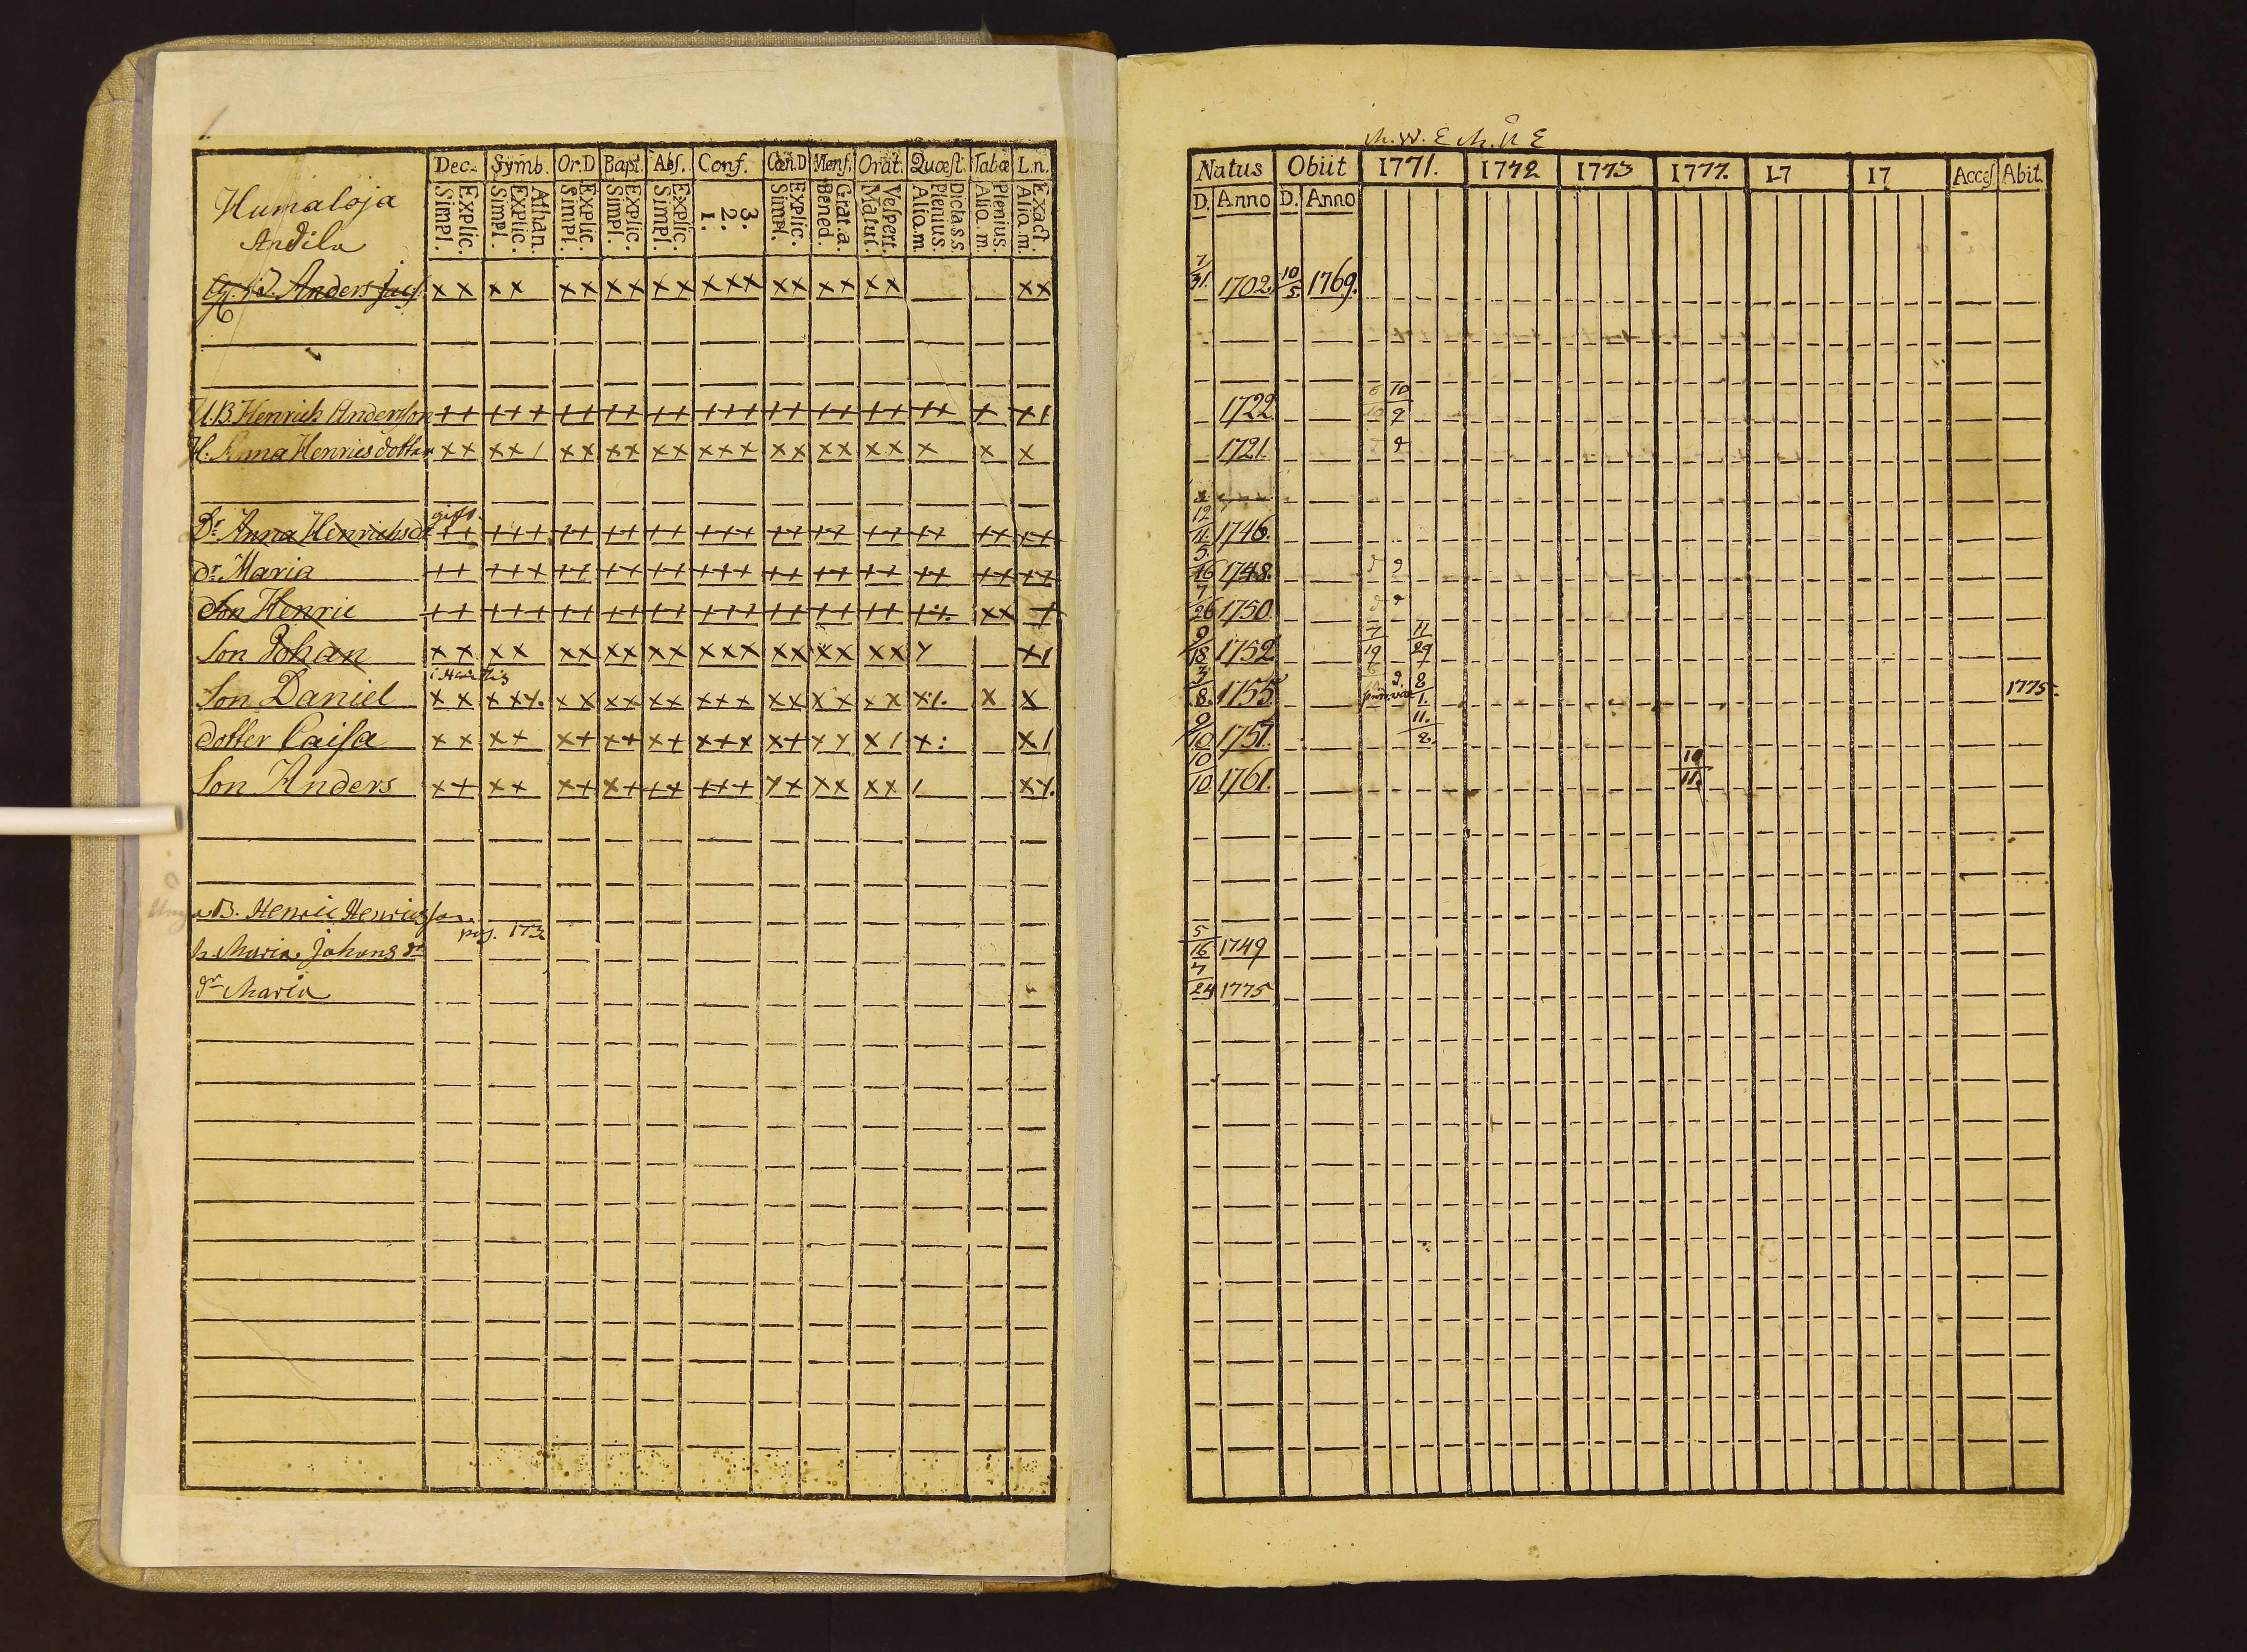 1.
Dec. Symb. Or.D Bapt. Abs. Conf. Cœn.D Mens. Orat. Quæst. Tabœ L.n.
Simpl. Explic. Simpl. Explic. Athan. Simpl. Explic. Simpl. Explic. Simpl. Explic. 1. 2. 3. Simpl. Explic. Bened. Grat.a. Matut. Vespert. Alio.m. Plenius. Dict.a.s.s. Alio.m. Plenius. Alio.m. Exact.
Humaloja
Andila
Anders Jacs. x x x x x x x x x x x x x x x x x x x x x
U.B. Henrich Andersson
H. Anna Henricsdotter x x x x / x x x x x x x x x x x x x x x x x x
gift.
Dr. Anna Henrichsdr
dr. Maria
Son Henric
Son Johan x x x x x x x x x x x x x x x x x x x
Son Daniel
dotter Caisa
Son Anders
B. Henric Henricsson
pag. 173
h. Maria Johans dr
dr Maria
Natus Obiit 1771. 1772 1773 1777. 17 17 Acces Abit.
D. Anno D. Anno
7/31. 1702. 10/5. 1769.
1722 10/9
1721.
12/11. 1746.
5/16 1748.
7/26 1750.
9/18 1752 7/19 11/29
3/8. 1755 8/1. 1775.
9/10 1757. 11./8.
10/10 1761. 10/11.
5/16 1749
7/24 1775